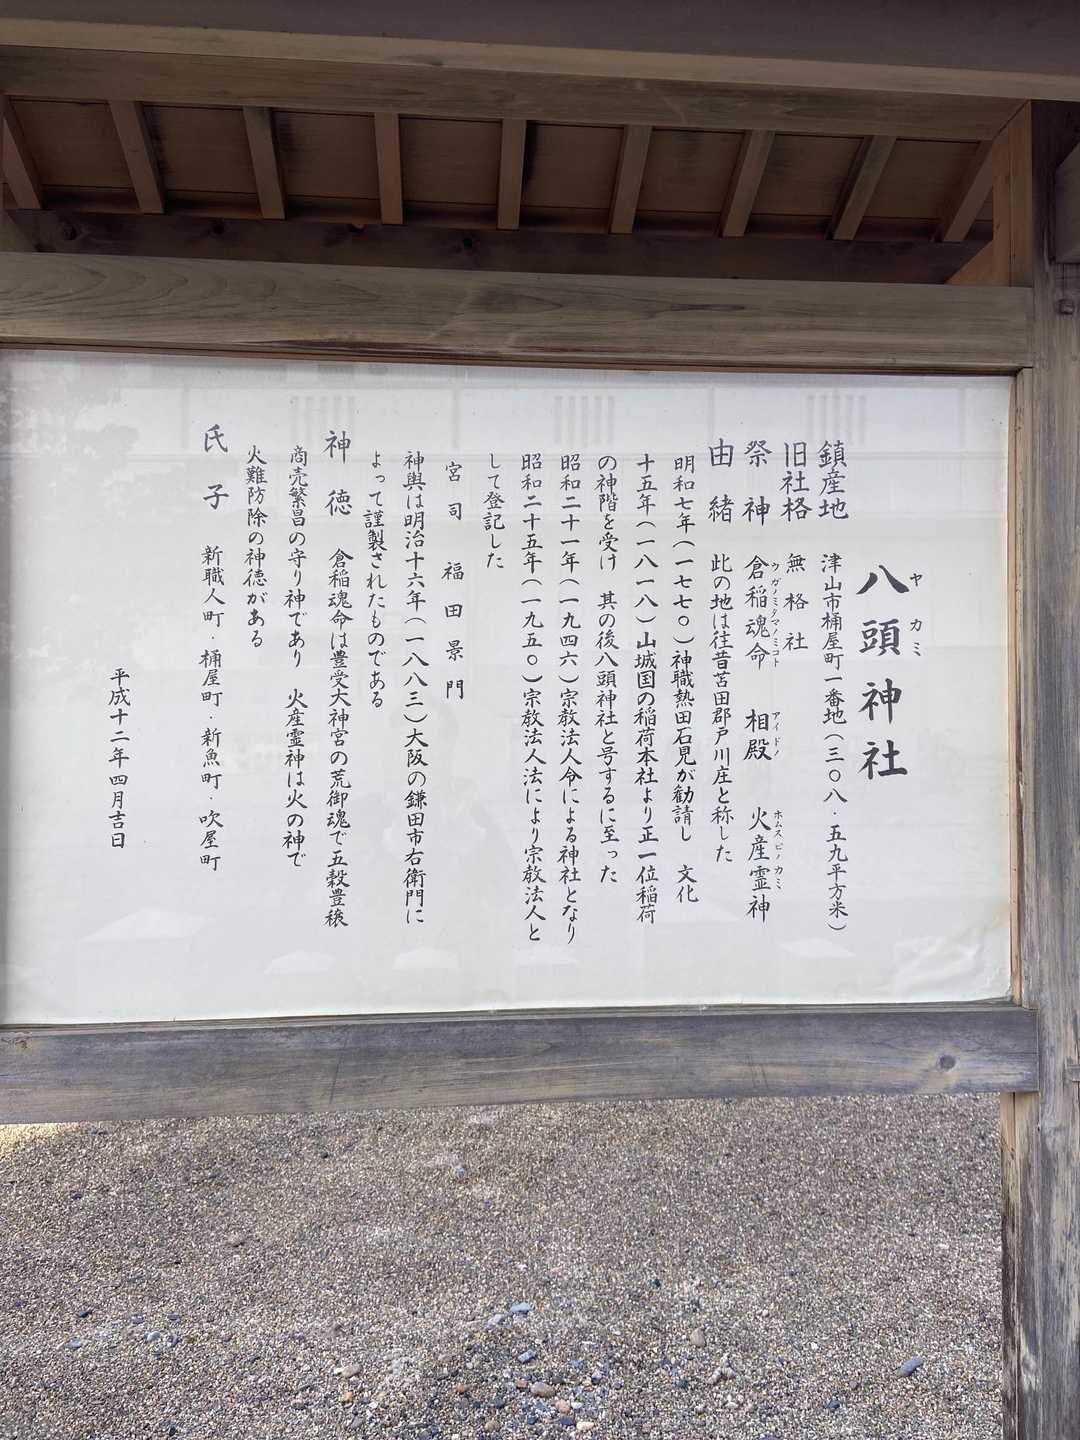 八頭神社
ヤカミ
鎮産地　津山市桶屋町一番地（三〇八・五九平方米）
旧社格　無格社
祭神　倉稲魂命　相殿　火産霊神
ウガノミタマノミコト　アイドノ　ホムスビノカミ
由緒　此の地は往昔苫田郡戸川庄と称した
明和七年（一七七〇）神職熱田石見が勧請し　文化
十五年（一八一八）山城国の稲荷本社より正一位稲荷
の神階を受け　其の後八頭神社と号するに至った
昭和二十一年（一九四六）宗教法人令による神社となり
昭和二十五年（一九五〇）宗教法人法により宗教法人と
して登記した
宮司　福田景門
神輿は明治十六年（一八八三）大阪の鎌田市右衛門に
よって謹製されたものである
神徳　倉稲魂命は豊受大神宮の荒御魂で五穀豊穣
商売繁昌の守り神であり　火産霊神は火の神で
火難防除の神徳がある
氏子　新職人町・桶屋町・新魚町・吹屋町
平成十二年四月吉日